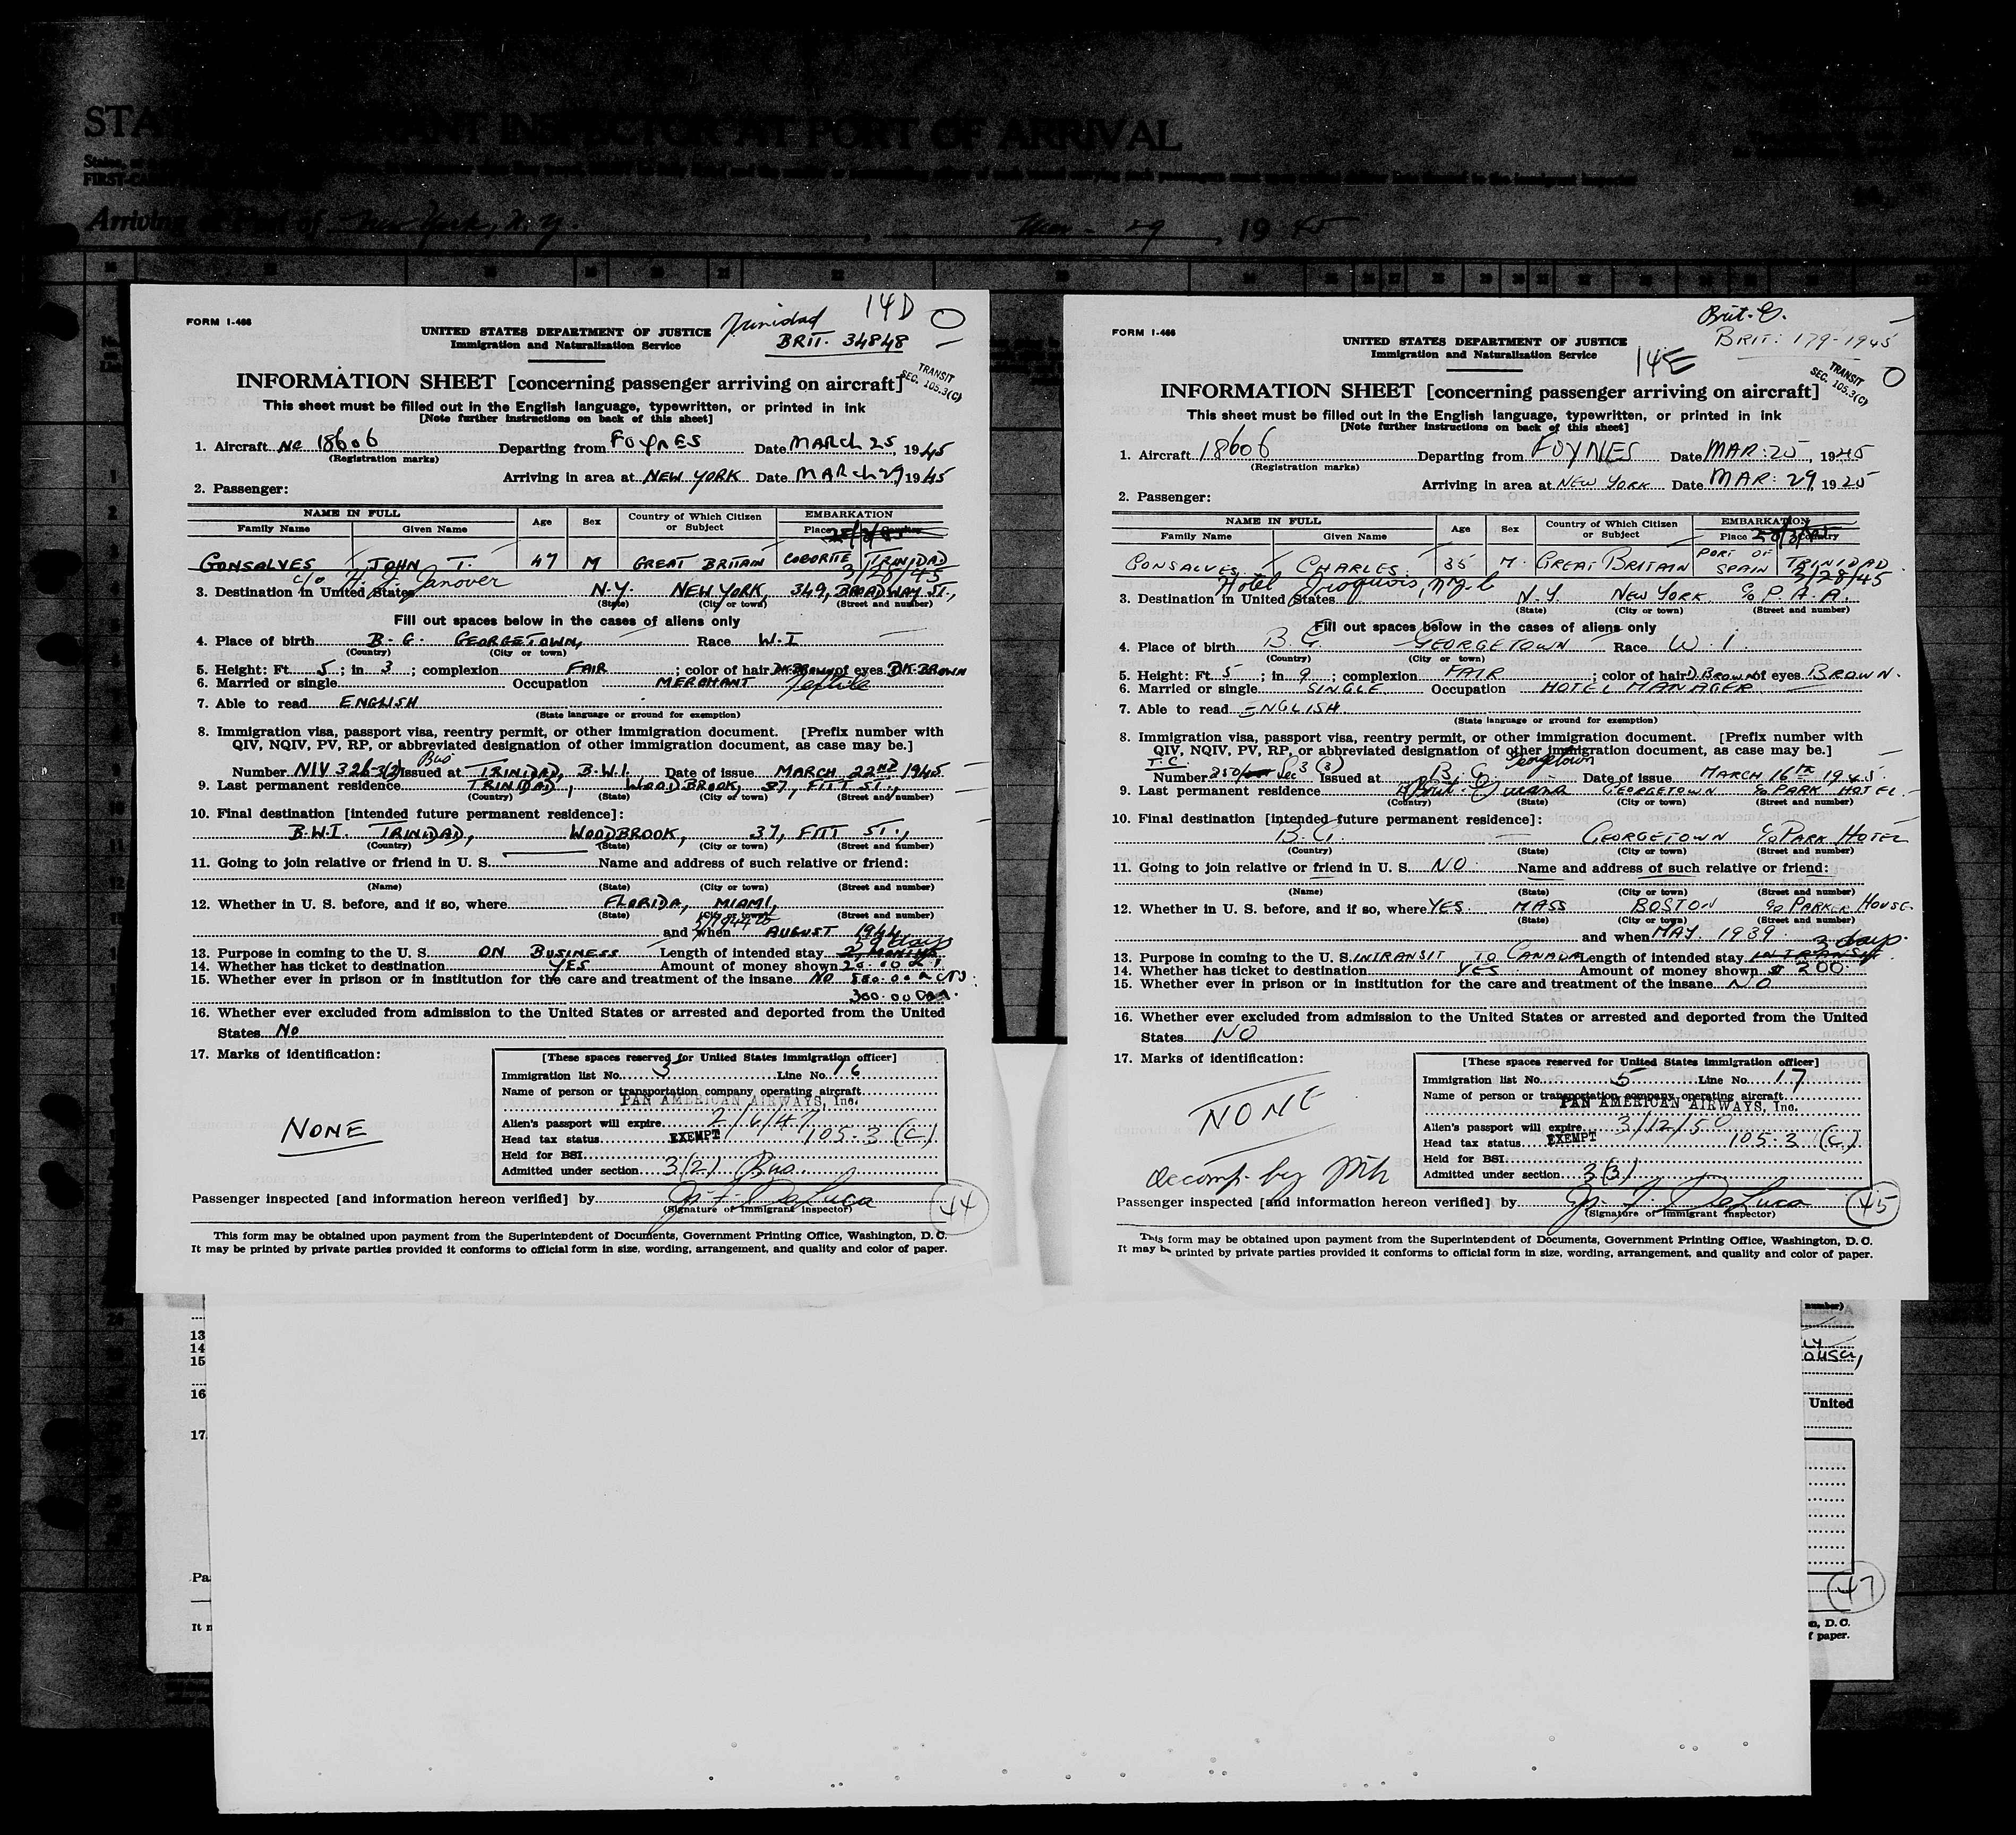 STA
NANT INSPECTOR AT PORT OF ARRIVAL
Arriving at Port of New York, N.Y. Mar - 29, 19 45
14D
Trinidad
FORM I-466
UNITED STATES DEPARTMENT OF JUSTICE
BRIT. 34848
Immigration and Naturalization Service
TRANSIT
SEC. 105.3(C)
INFORMATION SHEET [concerning passenger arriving on aircraft]
This sheet must be filled out in the English language, typewritten, or printed in ink
[Note further instructions on back of this sheet]
1. Aircraft NC 18606 Departing from FOYNES Date MARCH 25, 1945
(Registration marks)
Arriving in area at NEW YORK Date MARCH 29 1945
2. Passenger:
NAME IN FULL Age Sex Country of Which Citizen or Subject EMBARKATION
Family Name Given Name Place
GONSALVES JOHN T. 47 M GREAT BRITAIN COCORITE TRINIDAD
3/28/45
c/o H. J. Janover
3. Destination in United States N.Y. NEW YORK, 349, BROADWAY ST.,
(State) (City or town) (Street and number)
Fill out spaces below in the cases of aliens only
4. Place of birth B.G. GEORGETOWN, Race W.I
(Country) (City or town)
5. Height: Ft. 5; in 3; complexion FAIR; color of hair DK-BROWN of eyes DK-BROWN
6. Married or single Occupation MERCHANT Textile
7. Able to read ENGLISH
(State language or ground for exemption)
8. Immigration visa, passport visa, reentry permit, or other immigration document. [Prefix number with
QIV, NQIV, PV, RP, or abbreviated designation of other immigration document, as case may be.]
Bus
Number NIV 326-3(2) Issued at TRINIDAD, B.W.I. Date of issue MARCH 22ND 1945
9. Last permanent residence TRINIDAD, WOODBROOK, 37, FITT ST.,
(Country) (State) (City or town) (Street and number)
10. Final destination [intended future permanent residence]:
B.W.I. TRINIDAD, WOODBROOK, 37, FITT ST.,
(Country) (State) (City or town) (Street and number)
11. Going to join relative or friend in U. S. Name and address of such relative or friend:
(Name) (State) (City or town) (Street and number)
12. Whether in U. S. before, and if so, where FLORIDA, MIAMI,
(State) (City or town) (Street and number)
and when AUGUST 1944
59 days
13. Purpose in coming to the U. S. ON BUSINESS Length of intended stay 2 MONTHS
14. Whether has ticket to destination YES Amount of money shown
15. Whether ever in prison or in institution for the care and treatment of the insane NO
300.00
16. Whether ever excluded from admission to the United States or arrested and deported from the United
States No
17. Marks of identification:
NONE
[These spaces reserved for United States immigration officer]
Immigration list No. 5 Line No. 16
Name of person or transportation company operating aircraft
PAN AMERICAN AIRWAYS, Inc.
Alien's passport will expire 2/6/47
Head tax status EXEMPT 105.3 (C)
Held for BSI
Admitted under section 3(2) Bus.
Passenger inspected [and information hereon verified] by J. F. DeLuca
(Signature of immigrant inspector)
44
This form may be obtained upon payment from the Superintendent of Documents, Government Printing Office, Washington, D. C.
It may be printed by private parties provided it conforms to official form in size, wording, arrangement, and quality and color of paper.
Brit. G.
FORM I-466
BRIT: 179-1945
UNITED STATES DEPARTMENT OF JUSTICE
Immigration and Naturalization Service
14E
TRANSIT
SEC. 105.3(C)
INFORMATION SHEET [concerning passenger arriving on aircraft]
This sheet must be filled out in the English language, typewritten, or printed in ink
[Note further instructions on back of this sheet]
1. Aircraft 18606 Departing from FOYNES Date MAR: 25, 1945
(Registration marks)
Arriving in area at NEW YORK Date MAR: 29, 1925
2. Passenger:
NAME IN FULL Age Sex Country of Which Citizen or Subject EMBARKATION
Family Name Given Name Place Country
GONSALVES CHARLES 35 M. GREAT BRITAIN PORT OF SPAIN TRINIDAD
3/28/45
Hotel Iroquois, nyc
3. Destination in United States N.Y. NEW YORK c/o P.A.A.
(State) (City or town) (Street and number)
Fill out spaces below in the cases of aliens only
4. Place of birth B.G. GEORGETOWN Race W.I.
(Country) (City or town)
5. Height: Ft. 5; in 9; complexion FAIR; color of hair D.BROWN of eyes BROWN.
6. Married or single SINGLE Occupation HOTEL MANAGER
7. Able to read ENGLISH.
(State language or ground for exemption)
8. Immigration visa, passport visa, reentry permit, or other immigration document. [Prefix number with
QIV, NQIV, PV, RP, or abbreviated designation of other immigration document, as case may be.]
T.C. Georgetown
Number 250 Sec 3 (3) Issued at B.G. Date of issue MARCH 16TH 1945.
9. Last permanent residence Brit. Guiana GEORGETOWN c/o PARK HOTEL
(Country) (State) (City or town) (Street and number)
10. Final destination [intended future permanent residence]:
B.G. GEORGETOWN c/o PARK HOTEL
(Country) (State) (City or town) (Street and number)
11. Going to join relative or friend in U. S. NO Name and address of such relative or friend:
(Name) (State) (City or town) (Street and number)
12. Whether in U. S. before, and if so, where YES. MASS BOSTON c/o PARKER HOUSE.
(State) (City or town) (Street and number)
and when MAY. 1939.
3 days.
13. Purpose in coming to the U. S. INTRANSIT TO CANADA Length of intended stay INTRANSIT
14. Whether has ticket to destination YES Amount of money shown $ 200.
15. Whether ever in prison or in institution for the care and treatment of the insane NO
16. Whether ever excluded from admission to the United States or arrested and deported from the United
States NO
17. Marks of identification:
NONE
[These spaces reserved for United States immigration officer]
Immigration list No. 5 Line No. 17
Name of person or transportation company operating aircraft
PAN AMERICAN AIRWAYS, Inc.
Alien's passport will expire 3/12/50
Head tax status EXEMPT 105.3 (C)
Held for BSI
Admitted under section 3(3)
Passenger inspected [and information hereon verified] by J. F. DeLuca
(Signature of immigrant inspector)
45
This form may be obtained upon payment from the Superintendent of Documents, Government Printing Office, Washington, D. C.
It may be printed by private parties provided it conforms to official form in size, wording, arrangement, and quality and color of paper.
number)
13
14
15
16
United
17.
Pa
47
It
D. C.
paper.